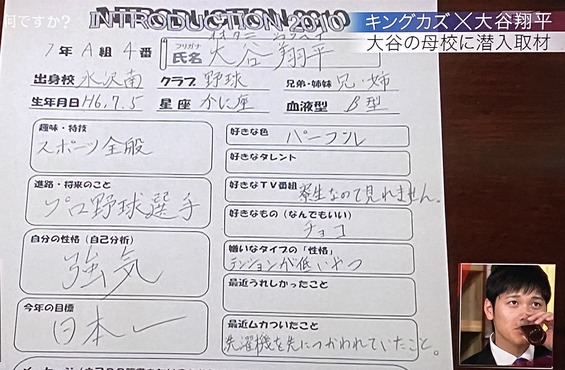 何ですか？
キングカズ×大谷翔平
大谷の母校に潜入取材
INTRODUCTION 2010
1年 A組 4番
フリガナ オオタニ ショウヘイ
氏名 大谷 翔平
出身校 水沢南 クラブ 野球 兄弟・姉妹 兄・姉
生年月日 H6.7.5 星座 かに座 血液型 B型
趣味・特技
スポーツ全般
進路・将来のこと
プロ野球選手
自分の性格（自己分析）
強気
今年の目標
日本一
好きな色 パープル
好きなタレント
好きなTV番組 寮生なので見れません。
好きなもの（なんでもいい）
チョコ
嫌いなタイプの「性格」
テンションが低いやつ
最近うれしかったこと
最近ムカついたこと
洗濯機を先につかわれていたこと。